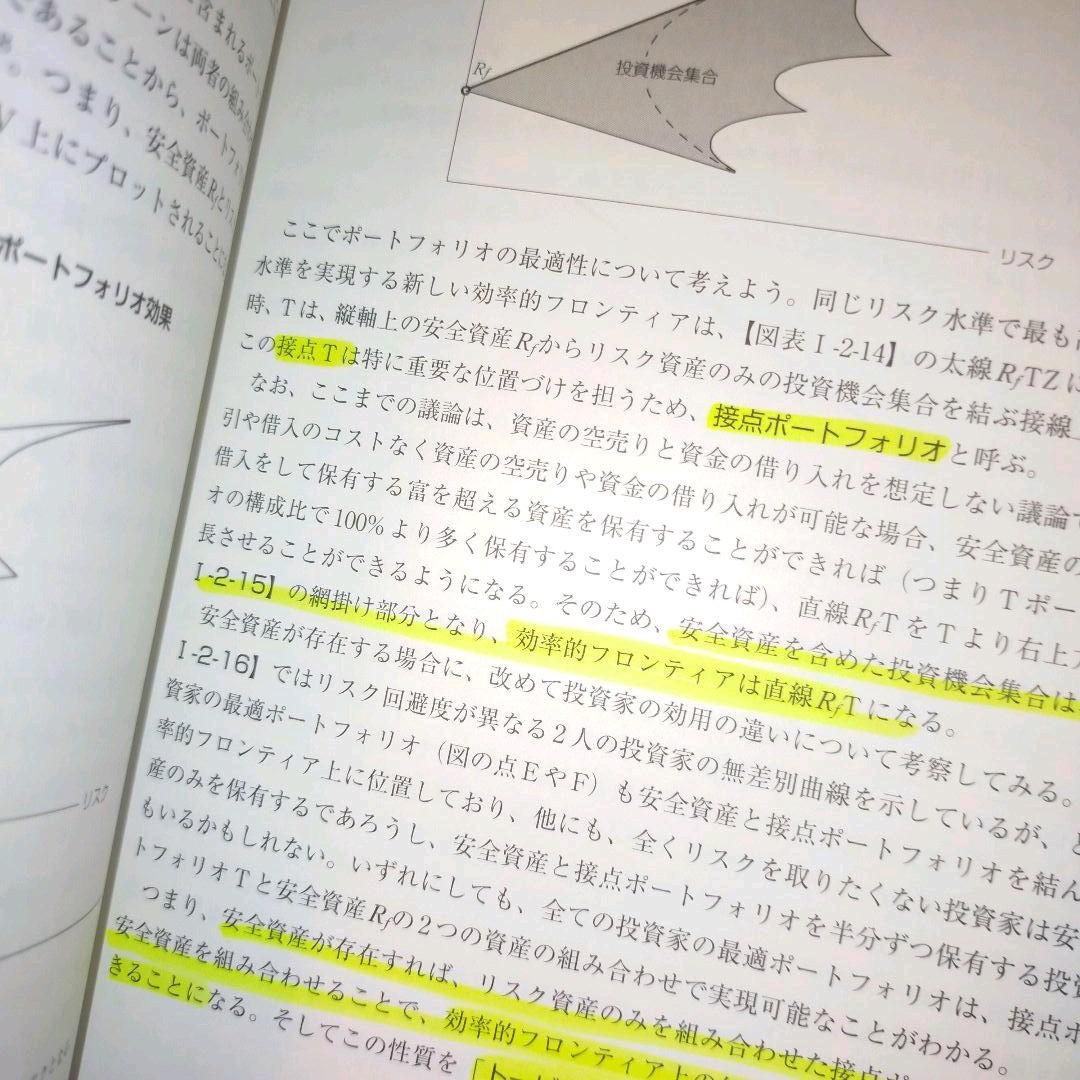 含まれるポー
ーンは両者の組み合わ
であることから、ポートフォ
。つまり、安全資産Rfとリス
V上にプロットされることに
ポートフォリオ効果
リスク
Rf
投資機会集合
リスク
ここでポートフォリオの最適性について考えよう。同じリスク水準で最も
水準を実現する新しい効率的フロンティアは、【図表Ⅰ-2-14】の太線RfTZに
時、Tは、縦軸上の安全資産Rfからリスク資産のみの投資機会集合を結ぶ接線
この接点Tは特に重要な位置づけを担うため、接点ポートフォリオと呼ぶ。
なお、ここまでの議論は、資産の空売りと資金の借り入れを想定しない議論
引や借入のコストなく資産の空売りや資金の借り入れが可能な場合、安全資産の
借入をして保有する富を超える資産を保有することができれば（つまりTポー
オの構成比で100%より多く保有することができれば）、直線RfTをTより右上
長させることができるようになる。そのため、安全資産を含めた投資機会集合は
Ⅰ-2-15】の網掛け部分となり、効率的フロンティアは直線RfTになる。
安全資産が存在する場合に、改めて投資家の効用の違いについて考察してみる。
Ⅰ-2-16】ではリスク回避度が異なる2人の投資家の無差別曲線を示しているが、
資家の最適ポートフォリオ（図の点EやF）も安全資産と接点ポートフォリオを結ん
率的フロンティア上に位置しており、他にも、全くリスクを取りたくない投資家は安
産のみを保有するであろうし、安全資産と接点ポートフォリオを半分ずつ保有する投資
もいるかもしれない。いずれにしても、全ての投資家の最適ポートフォリオは、接点ポ
トフォリオTと安全資産Rfの2つの資産の組み合わせで実現可能なことがわかる。
つまり、安全資産が存在すれば、リスク資産のみを組み合わせた接点ポ
安全資産を組み合わせることで、効率的フロンティア上の
きることになる。そしてこの性質を「トービ